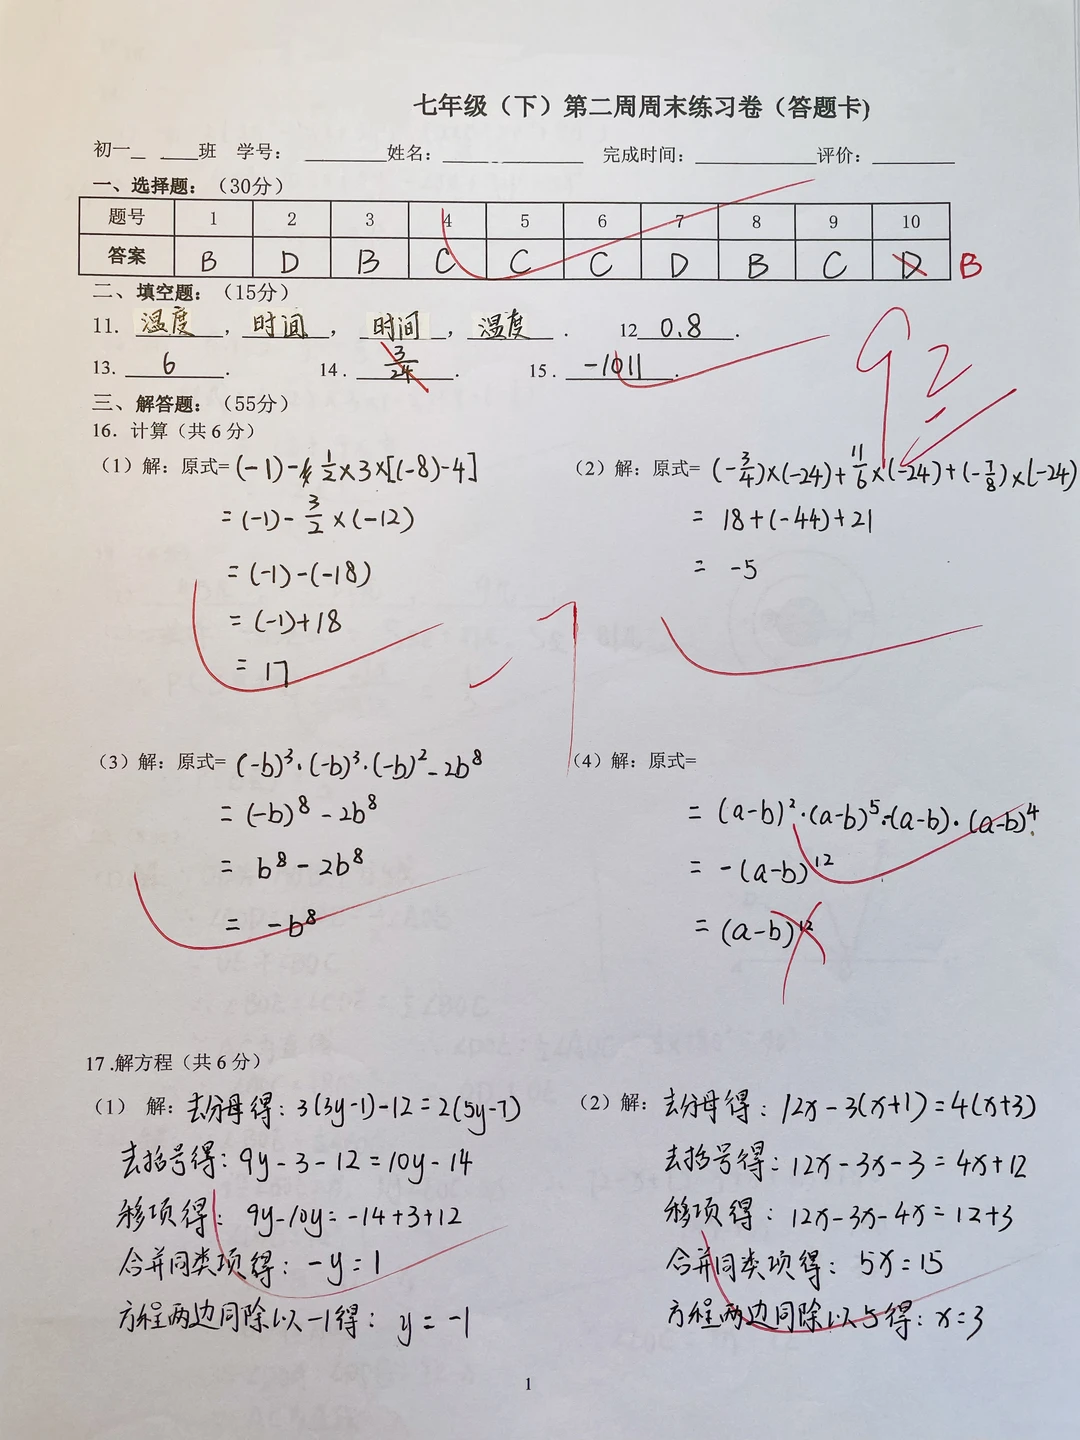 七年级（下）第二周周末练习卷（答题卡)
初一__ ___班 学号： ________姓名：____________ 完成时间：____________评价：________
一、选择题：（30分）
题号 1 2 3 4 5 6 7 8 9 10
答案 B D B C C C D B C D B
二、填空题：（15分）
11. 温度，时间，时间，温度. 12 0.8.
13. 6. 14. 3/24. 15. -1011.
92
三、解答题：（55分）
16. 计算（共6分）
（1）解：原式= (-1)-1/2×3×[(-8)-4]
=(-1)-3/2×(-12)
=(-1)-(-18)
=(-1)+18
=17
（2）解：原式= (-3/4)×(-24)+11/6×(-24)+(-7/8)×(-24)
= 18+(-44)+21
= -5
-1
（3）解：原式= (-b)³·(-b)³·(-b)²-2b⁸
= (-b)⁸-2b⁸
= b⁸-2b⁸
= -b⁸
（4）解：原式=
= (a-b)²·(a-b)⁵·(a-b)·(a-b)⁴
= -(a-b)¹²
= (a-b)¹²
17 .解方程（共6分）
（1） 解：去分母得：3(3y-1)-12=2(5y-7)
去括号得：9y-3-12=10y-14
移项得：9y-10y=-14+3+12
合并同类项得：-y=1
方程两边同除以-1得：y=-1
（2）解：去分母得：12x-3(x+1)=4(x+3)
去括号得：12x-3x-3=4x+12
移项得：12x-3x-4x=12+3
合并同类项得：5x=15
方程两边同除以5得：x=3
1